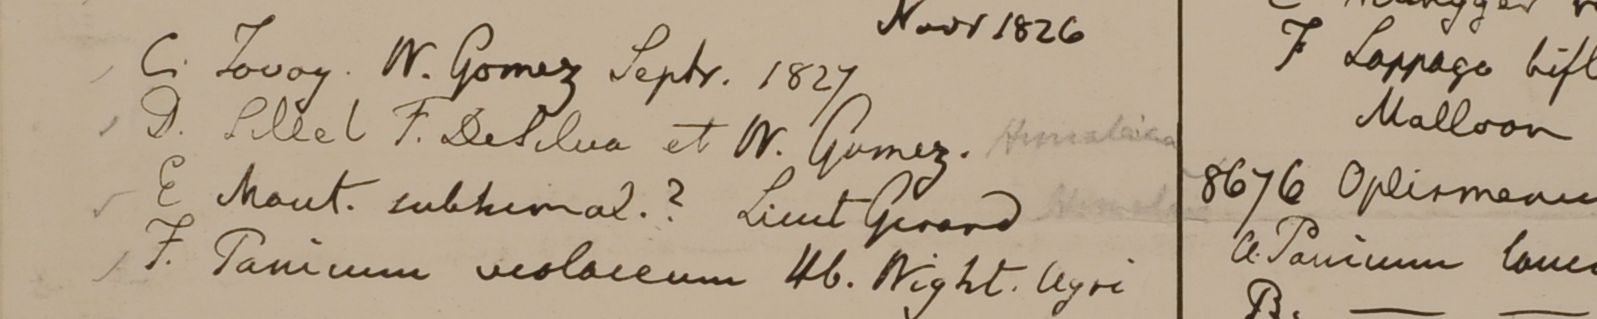 Novr 1826
C. Tavoy. W. Gomez Septr. 1827
D. Sillet F. DeSilva et W. Gomez. Himalaica
E Mont. subhimal.? Lieut Gerard
F. Panicum violaceum Hb. Wight. Agri
F Lappago bifl
Malloon
8676 Oplismenu
a. Panicum lanc
B. — —